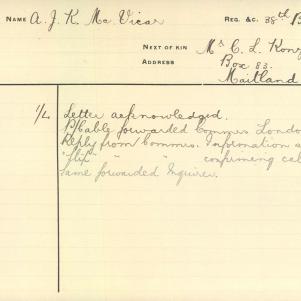 NAME A. J. K. Mc Vicar REG. &C. 38th B
NEXT OF KIN Mrs C. L. Konz
ADDRESS Box 83.
Maitland
1/4 Letter acknowledged.
P/Cable forwarded Commrs London
Reply from Commrs. Information a
"slip" " " confirming cab
Same forwarded Enquirer.